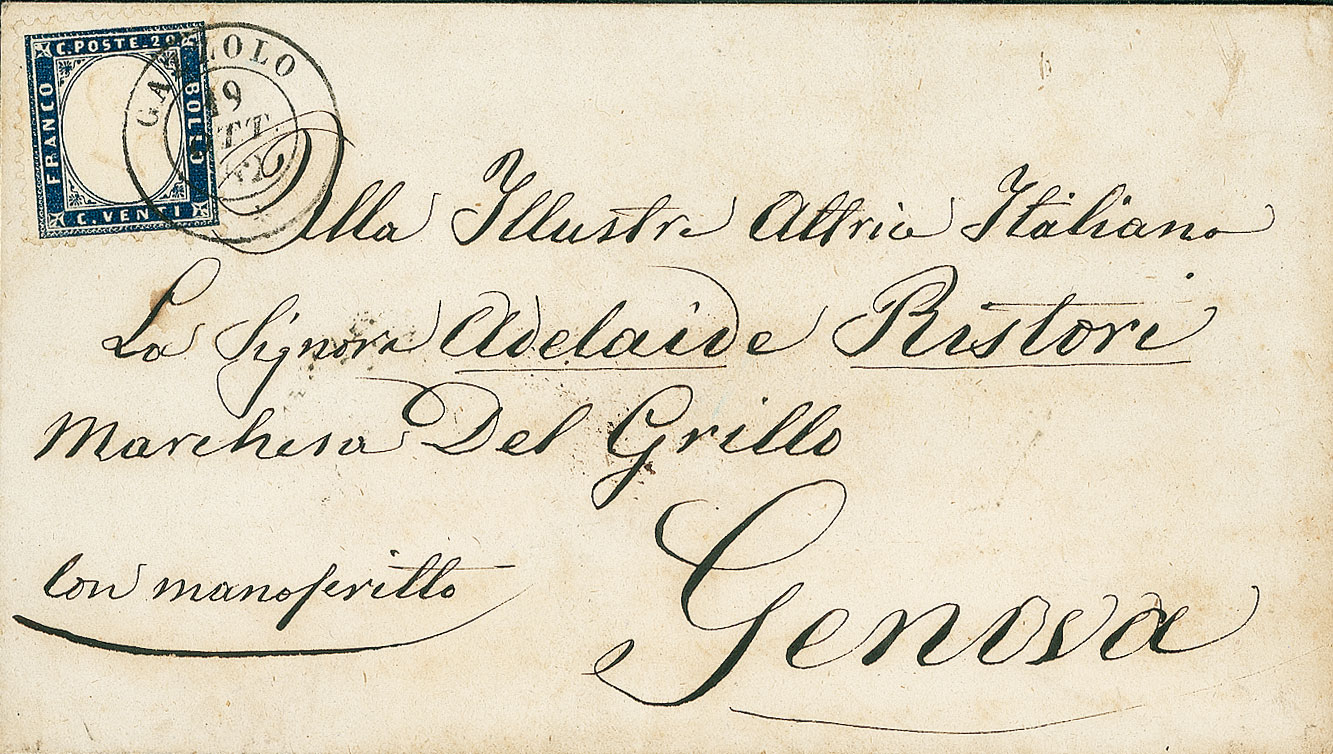 C. POSTE. 20
FRANCO
BOLLO
C. VENTI
19
Alla Illustre Attrice Italiana
La Signora Adelaide Ristori
Marchesa Del Grillo
Con manoscritto
Genova